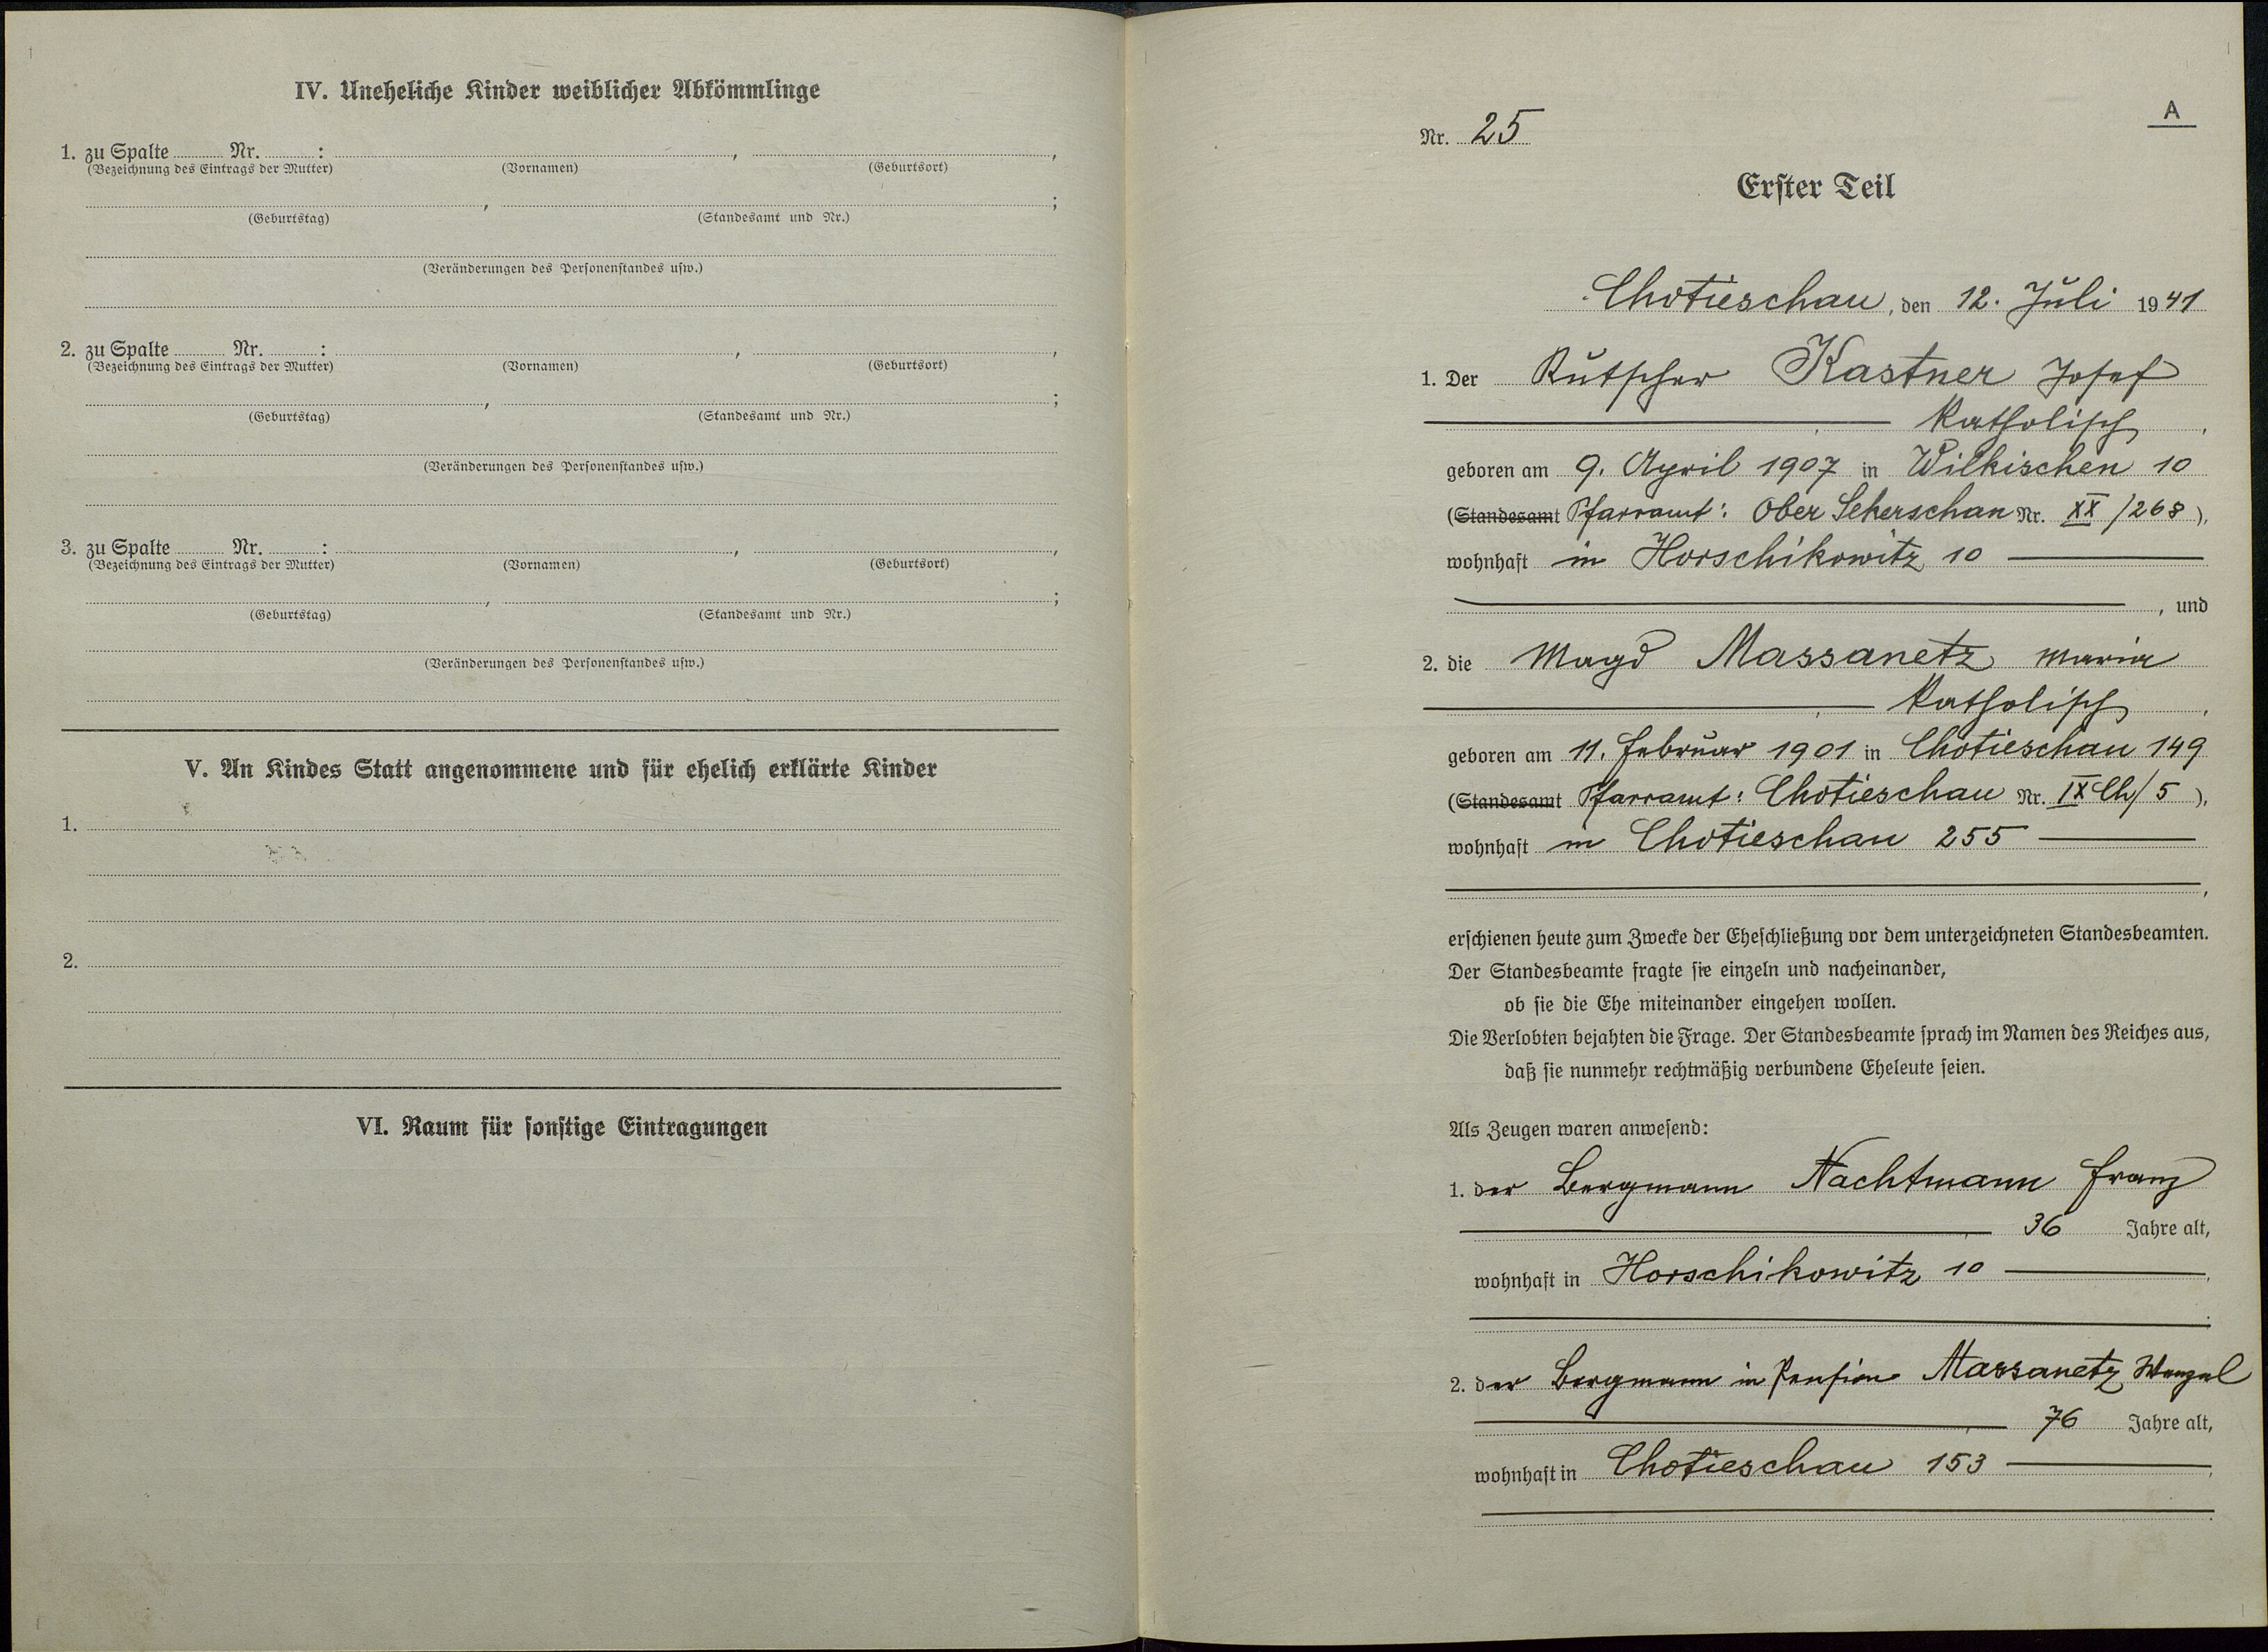 IV. Uneheliche Kinder weiblicher Abkömmlinge
1. zu Spalte Nr. : , ,
(Bezeichnung des Eintrags der Mutter) (Vornamen) (Geburtsort)
, ;
(Geburtstag) (Standesamt und Nr.)
(Veränderungen des Personenstandes usw.)
2. zu Spalte Nr. : , ,
(Bezeichnung des Eintrags der Mutter) (Vornamen) (Geburtsort)
, ;
(Geburtstag) (Standesamt und Nr.)
(Veränderungen des Personenstandes usw.)
3. zu Spalte Nr. : , ,
(Bezeichnung des Eintrags der Mutter) (Vornamen) (Geburtsort)
, ;
(Geburtstag) (Standesamt und Nr.)
(Veränderungen des Personenstandes usw.)
V. An Kindes Statt angenommene und für ehelich erklärte Kinder
1.
2.
VI. Raum für sonstige Eintragungen
A
Nr. 25
Erster Teil
Chotieschau, den 12. Juli 1941
1. Der Kutscher Kastner Josef
katholisch,
geboren am 9. April 1907 in Wilkischen 10
(Standesamt Pfarramt: Ober Sekerschan Nr. XX/268),
wohnhaft in Horschikowitz 10
, und
2. die Magd Massanetz Maria
katholisch,
geboren am 11. Februar 1901 in Chotieschau 149
(Standesamt Pfarramt: Chotieschau Nr. IX Ch/5),
wohnhaft in Chotieschau 255
,
erschienen heute zum Zwecke der Eheschließung vor dem unterzeichneten Standesbeamten.
Der Standesbeamte fragte sie einzeln und nacheinander,
ob sie die Ehe miteinander eingehen wollen.
Die Verlobten bejahten die Frage. Der Standesbeamte sprach im Namen des Reiches aus,
daß sie nunmehr rechtmäßig verbundene Eheleute seien.
Als Zeugen waren anwesend:
1. der Bergmann Nachtmann Franz
36 Jahre alt,
wohnhaft in Horschikowitz 10,
2. der Bergmann in Pension Massanetz Wenzel
76 Jahre alt,
wohnhaft in Chotieschau 153,